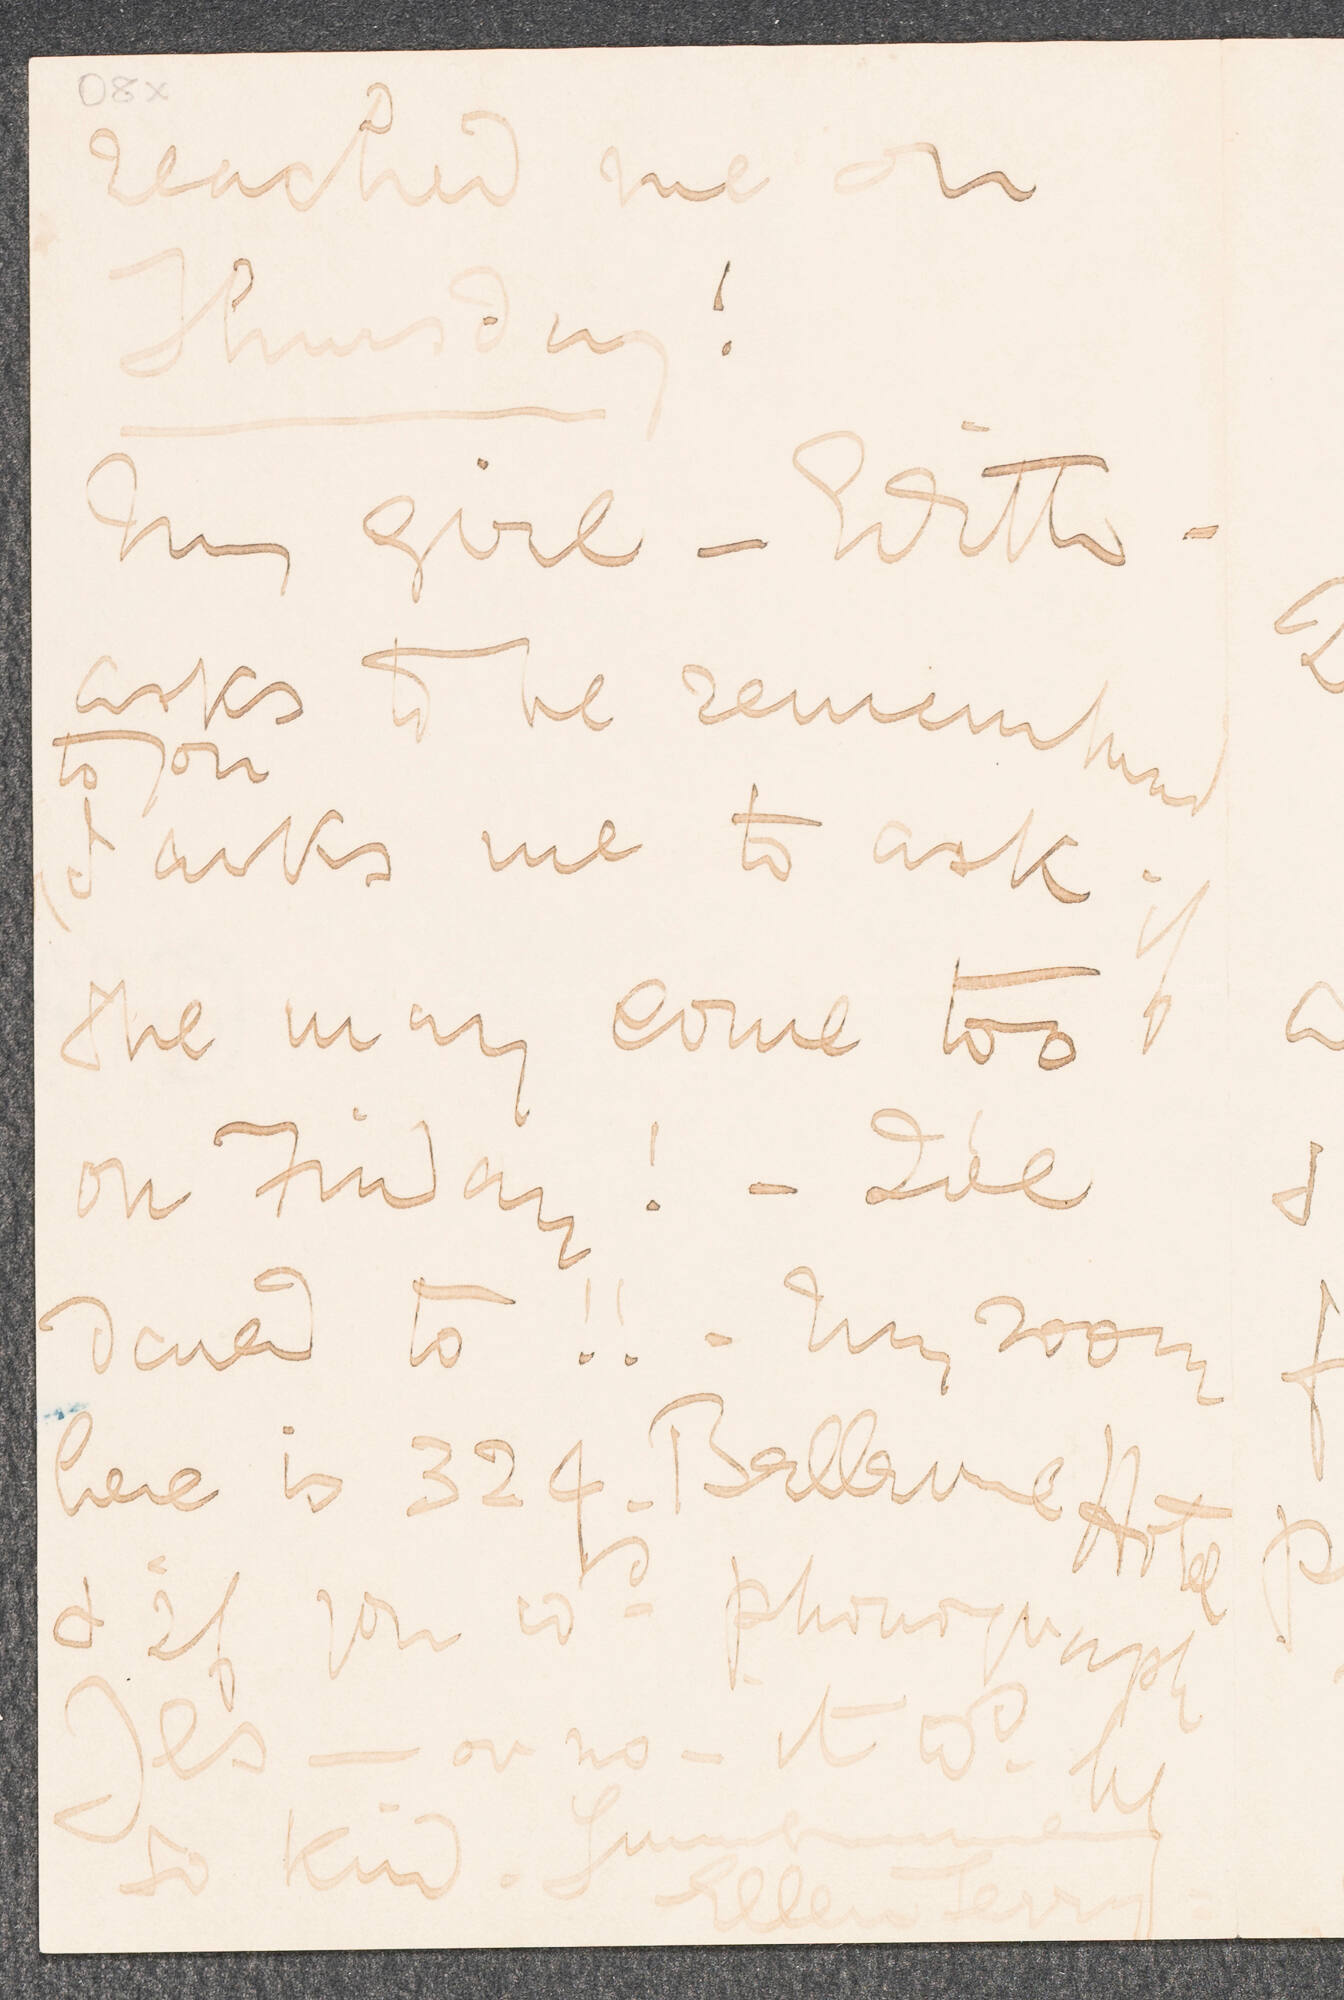 08x
reached me on
Thursday!
My girl - Edith -
asks to be remembered
to you
(& asks me to ask if
she may come too
on Friday! -
to!! - My room
here is 324. Bellevue Hotel
& if you wd phonograph
Yes - or no - it wd be
so kind.
Ellen Terry -